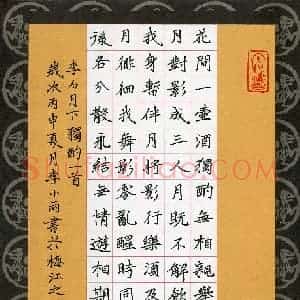 花間一壺酒獨酌無相親舉
月對影成三人月既不解飲
我身暫伴月將影行樂須及
月徘徊我舞影零亂醒時同
後各分散永結無情遊相期
李白月下獨酌一首
歲次丙申夏月李小雨書於梅江之